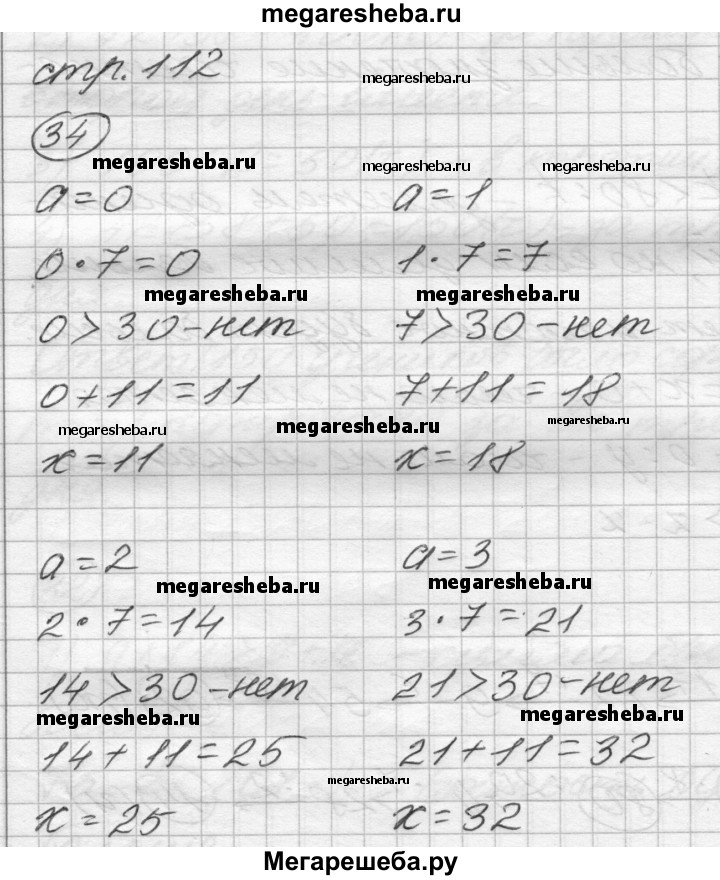 megaresheba.ru
стр. 112
megaresheba.ru
34
megaresheba.ru
megaresheba.ru
megaresheba.ru
a=0
a=1
0·7=0
1·7=7
megaresheba.ru
megaresheba.ru
0>30-нет
7>30-нет
0+11=11
7+11=18
megaresheba.ru
megaresheba.ru
megaresheba.ru
x=11
x=18
a=2
a=3
megaresheba.ru
megaresheba.ru
2·7=14
3·7=21
14>30-нет
21>30-нет
megaresheba.ru
megaresheba.ru
14+11=25
21+11=32
megaresheba.ru
x=25
x=32
Мегарешеба.ру